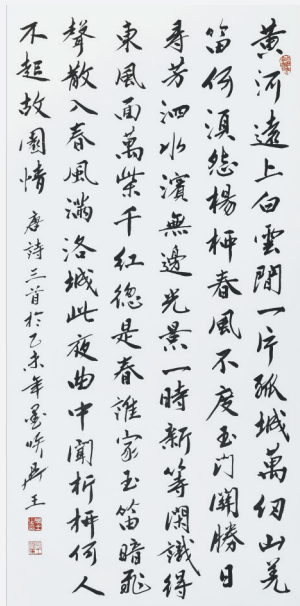 黃河遠上白雲間一片孤城萬仞山羌
笛何須怨楊柳春風不度玉门關勝日
尋芳泗水濱無邊光景一時新等閑識得
東風面萬紫千紅總是春誰家玉笛暗飛
聲散入春風滿洛城此夜曲中聞折柳何人
不起故園情 唐詩三首於乙未年墨吟